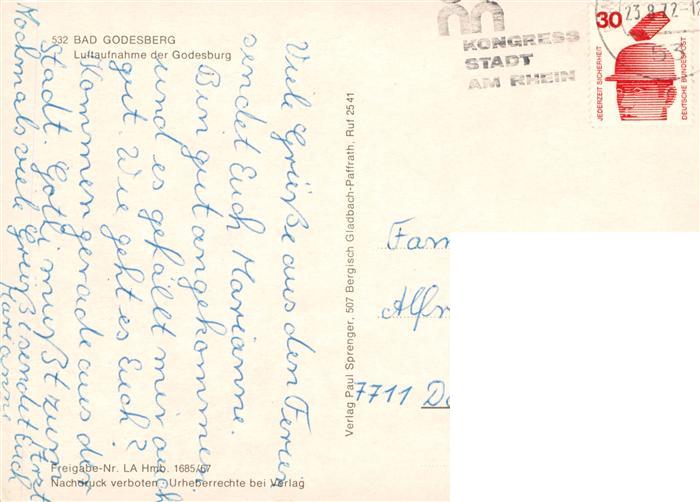 532 BAD GODESBERG
Luftaufnahme der Godesburg
Viele Grüße aus den Ferien
sendet Euch Marianne.
Bin gut angekommen
und es gefällt mir auch
gut. Wie geht es Euch?
Kommen gerade aus der
Stadt. Gotti mußt zum Arzt
Nochmals viele Grüße sendet Euch
Marianne
Freigabe-Nr. LA Hmb. 1685/67
Nachdruck verboten · Urheberrechte bei Verlag
Verlag Paul Sprenger, 507 Bergisch Gladbach-Paffrath, Ruf 2541
KONGRESS
STADT
AM RHEIN
23.8.72-17
30
JEDERZEIT SICHERHEIT
DEUTSCHE BUNDESPOST
Fam
Alfr
7711 D